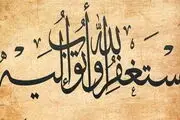 ستغفر الله وأتوب إليه